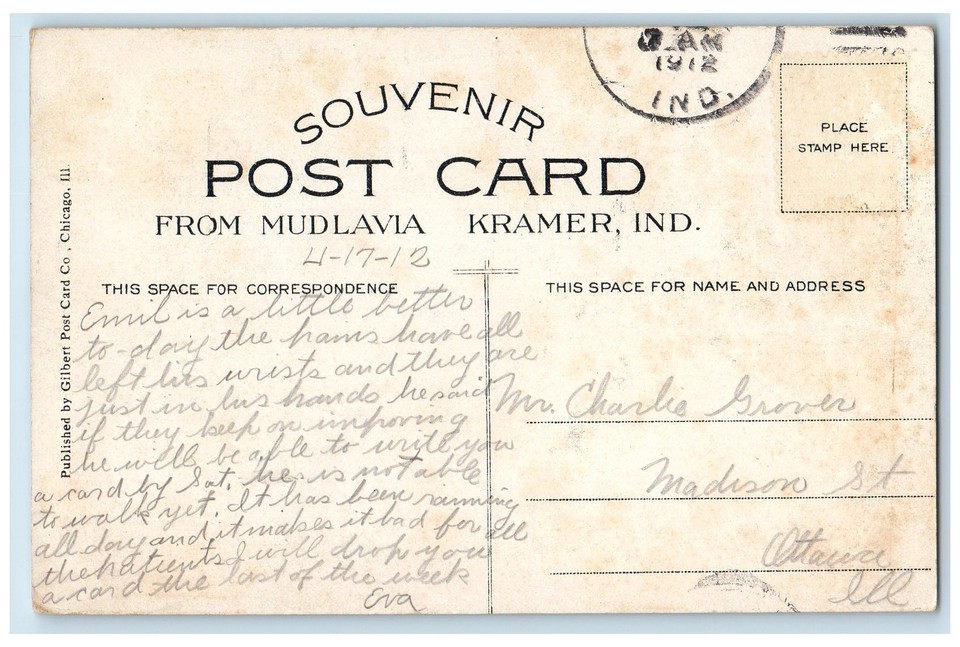 AM
1912
IND.
PLACE
STAMP HERE
SOUVENIR
POST CARD
FROM MUDLAVIA KRAMER, IND.
4-17-12
Published by Gilbert Post Card Co., Chicago, Ill
THIS SPACE FOR CORRESPONDENCE
Emil is a little better
to-day the pains have all
left his wrists and they are
just in his hands he said
if they keep on improving
he will be able to write you
a card by Sat. he is not able
to walk yet. It has been raining
all day and it makes it bad for all
the patients I will drop you
a card the last of the week
Eva
THIS SPACE FOR NAME AND ADDRESS
Mr. Charlie Grover
Madison St
Ottawa
Ill